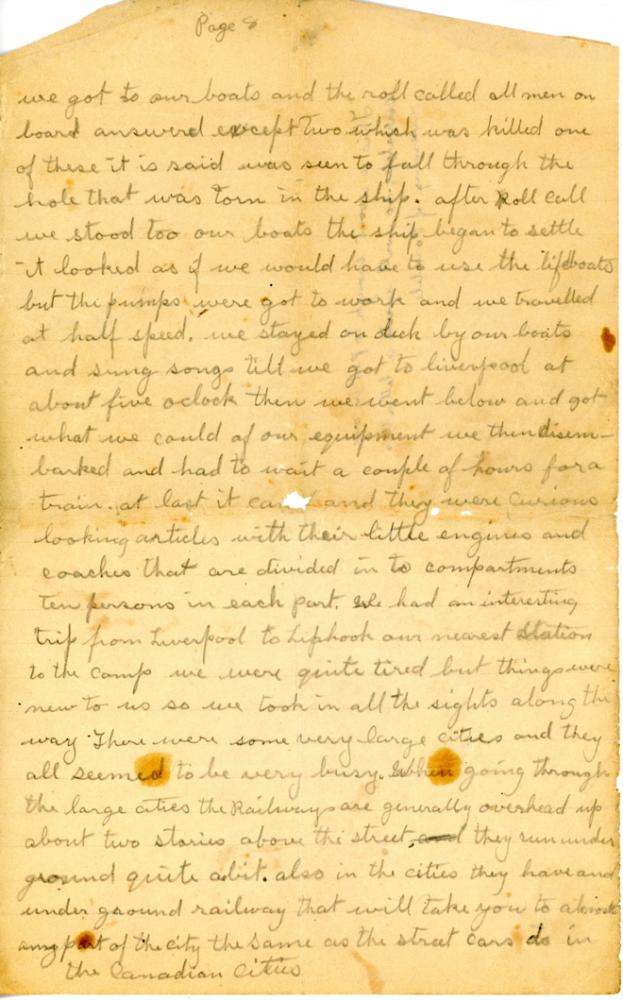 Page 8
we got to our boats and the roll called all men on
board answered except Two which was killed one
of these it is said was seen to fall through the
hole that was torn in the ship. after Roll Call
we stood too our boats the ship began to settle
it looked as if we would have to use the lifeboats
but the pumps were got to work and we travelled
at half speed. we stayed on deck by our boats
and sung songs till we got to liverpool at
about five oclock then we went below and got
what we could of our equipment we then disem-
barked and had to wait a couple of hours for a
train. at last it and they were Curious
looking articles with their little engines and
coaches that are divided in to compartments
ten persons in each part. We had an interesting
trip from Liverpool to Liphook our nearest Station
to the Camp we were quite tired but things were
new to us so we took in all the sights along the
way There were some very large cities and they
all seemed to be very busy. When going through
the large cities the Railways are generally overhead up
about two stories above the street, they run under
ground quite abit. also in the cities they have and
under ground railway that will take you to almost
any part of the city the same as the street cars do in
the Canadian Cities